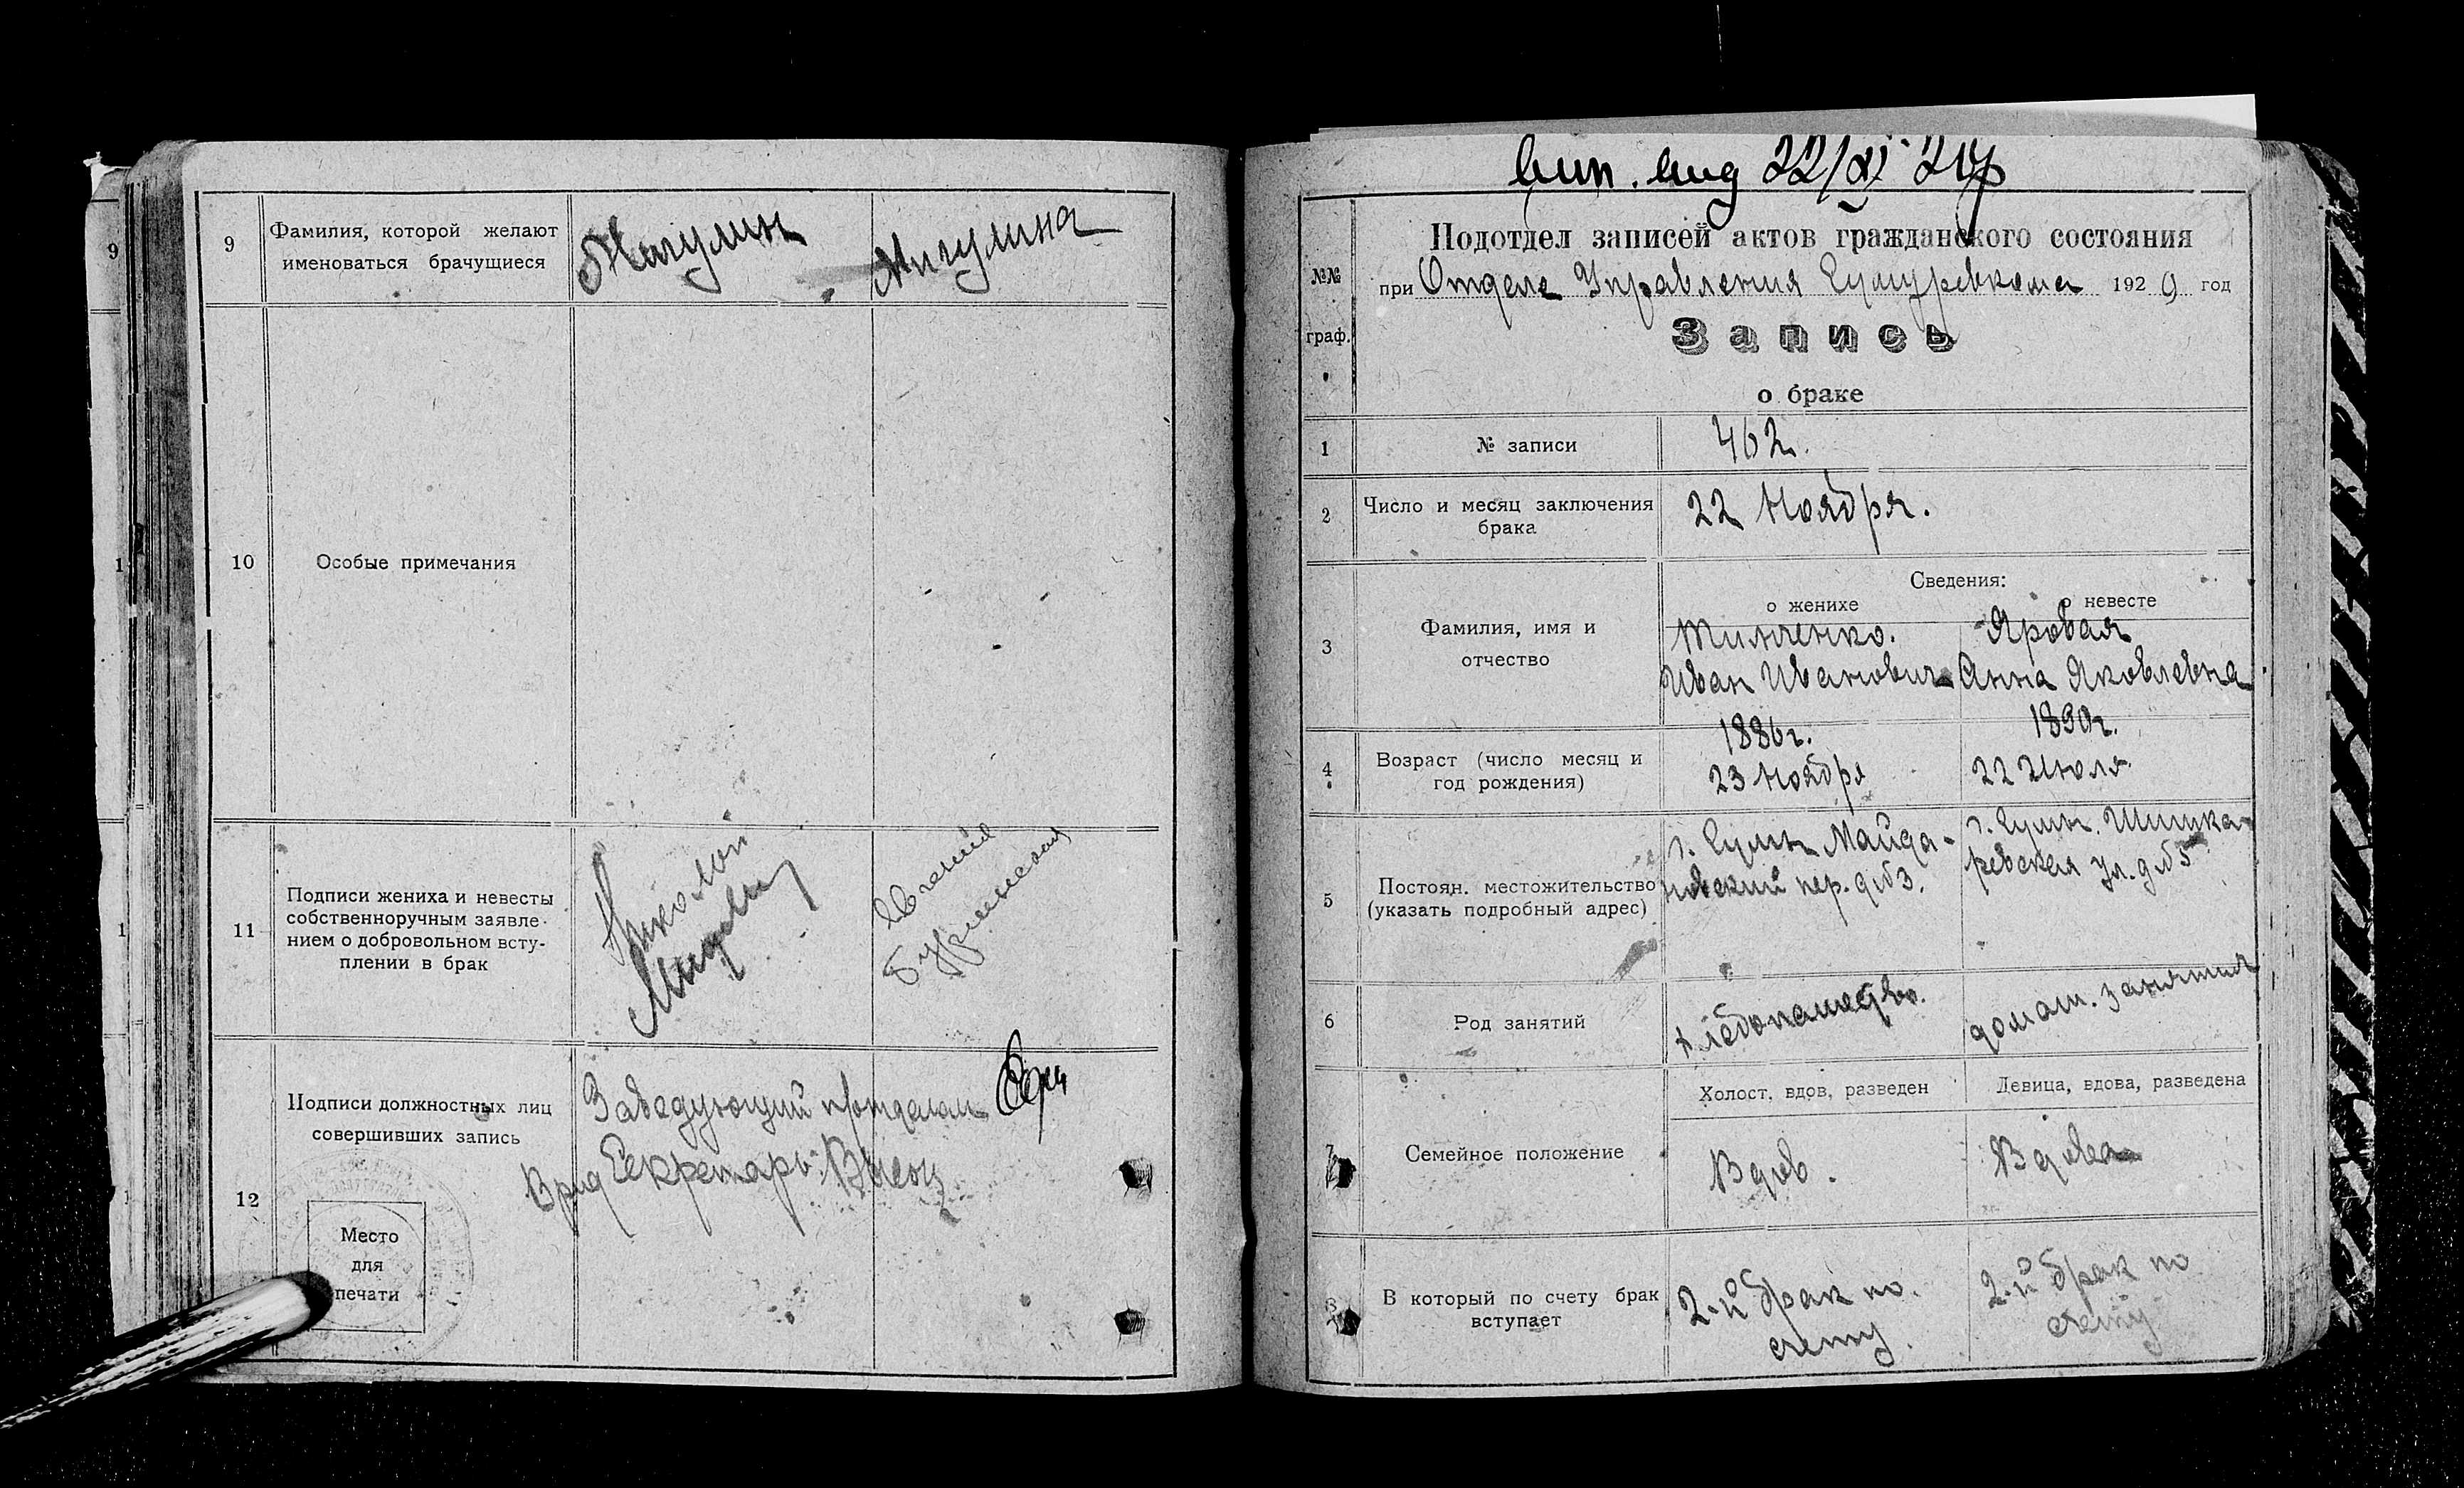 9
Фамилия, которой желают
именоваться брачущиеся
Мигулин
Мигулина
10
Особые примечания
11
Подписи жениха и невесты
собственноручным заявле-
нием о добровольном всту-
плении в брак
Николай
Евгения
12
Подписи должностных лиц
совершивших запись
Заведующий п/отделом
Врид Секретарь
Место
для
печати
вып. вид 22/XI
№№
граф.
Подотдел записей актов гражданского состояния
при Отделе Управления Сумуревкома 1920 год
Запись
о браке
1
№ записи
462.
2
Число и месяц заключения
брака
22 Ноября.
3
Фамилия, имя и
отчество
Сведения:
о женихе
о невесте
Тимченко.
Иван Иванович
Яровая
Анна Яковлевна
4
Возраст (число месяц и
год рождения)
1886г.
23 Ноября
1890г.
22 Июля
5
Постоян. местожительство
(указать подробный адрес)
г. Сумы Майда-
новский пер. д№3.
г. Сумы. Шишка-
ревская ул. д№5
6
Род занятий
хлебопашество.
домаш. занятия
7
Семейное положение
Холост, вдов, разведен
Девица, вдова, разведена
Вдов.
Вдова
8
В который по счету брак
вступает
2-й брак по
счету.
2-й брак по
счету